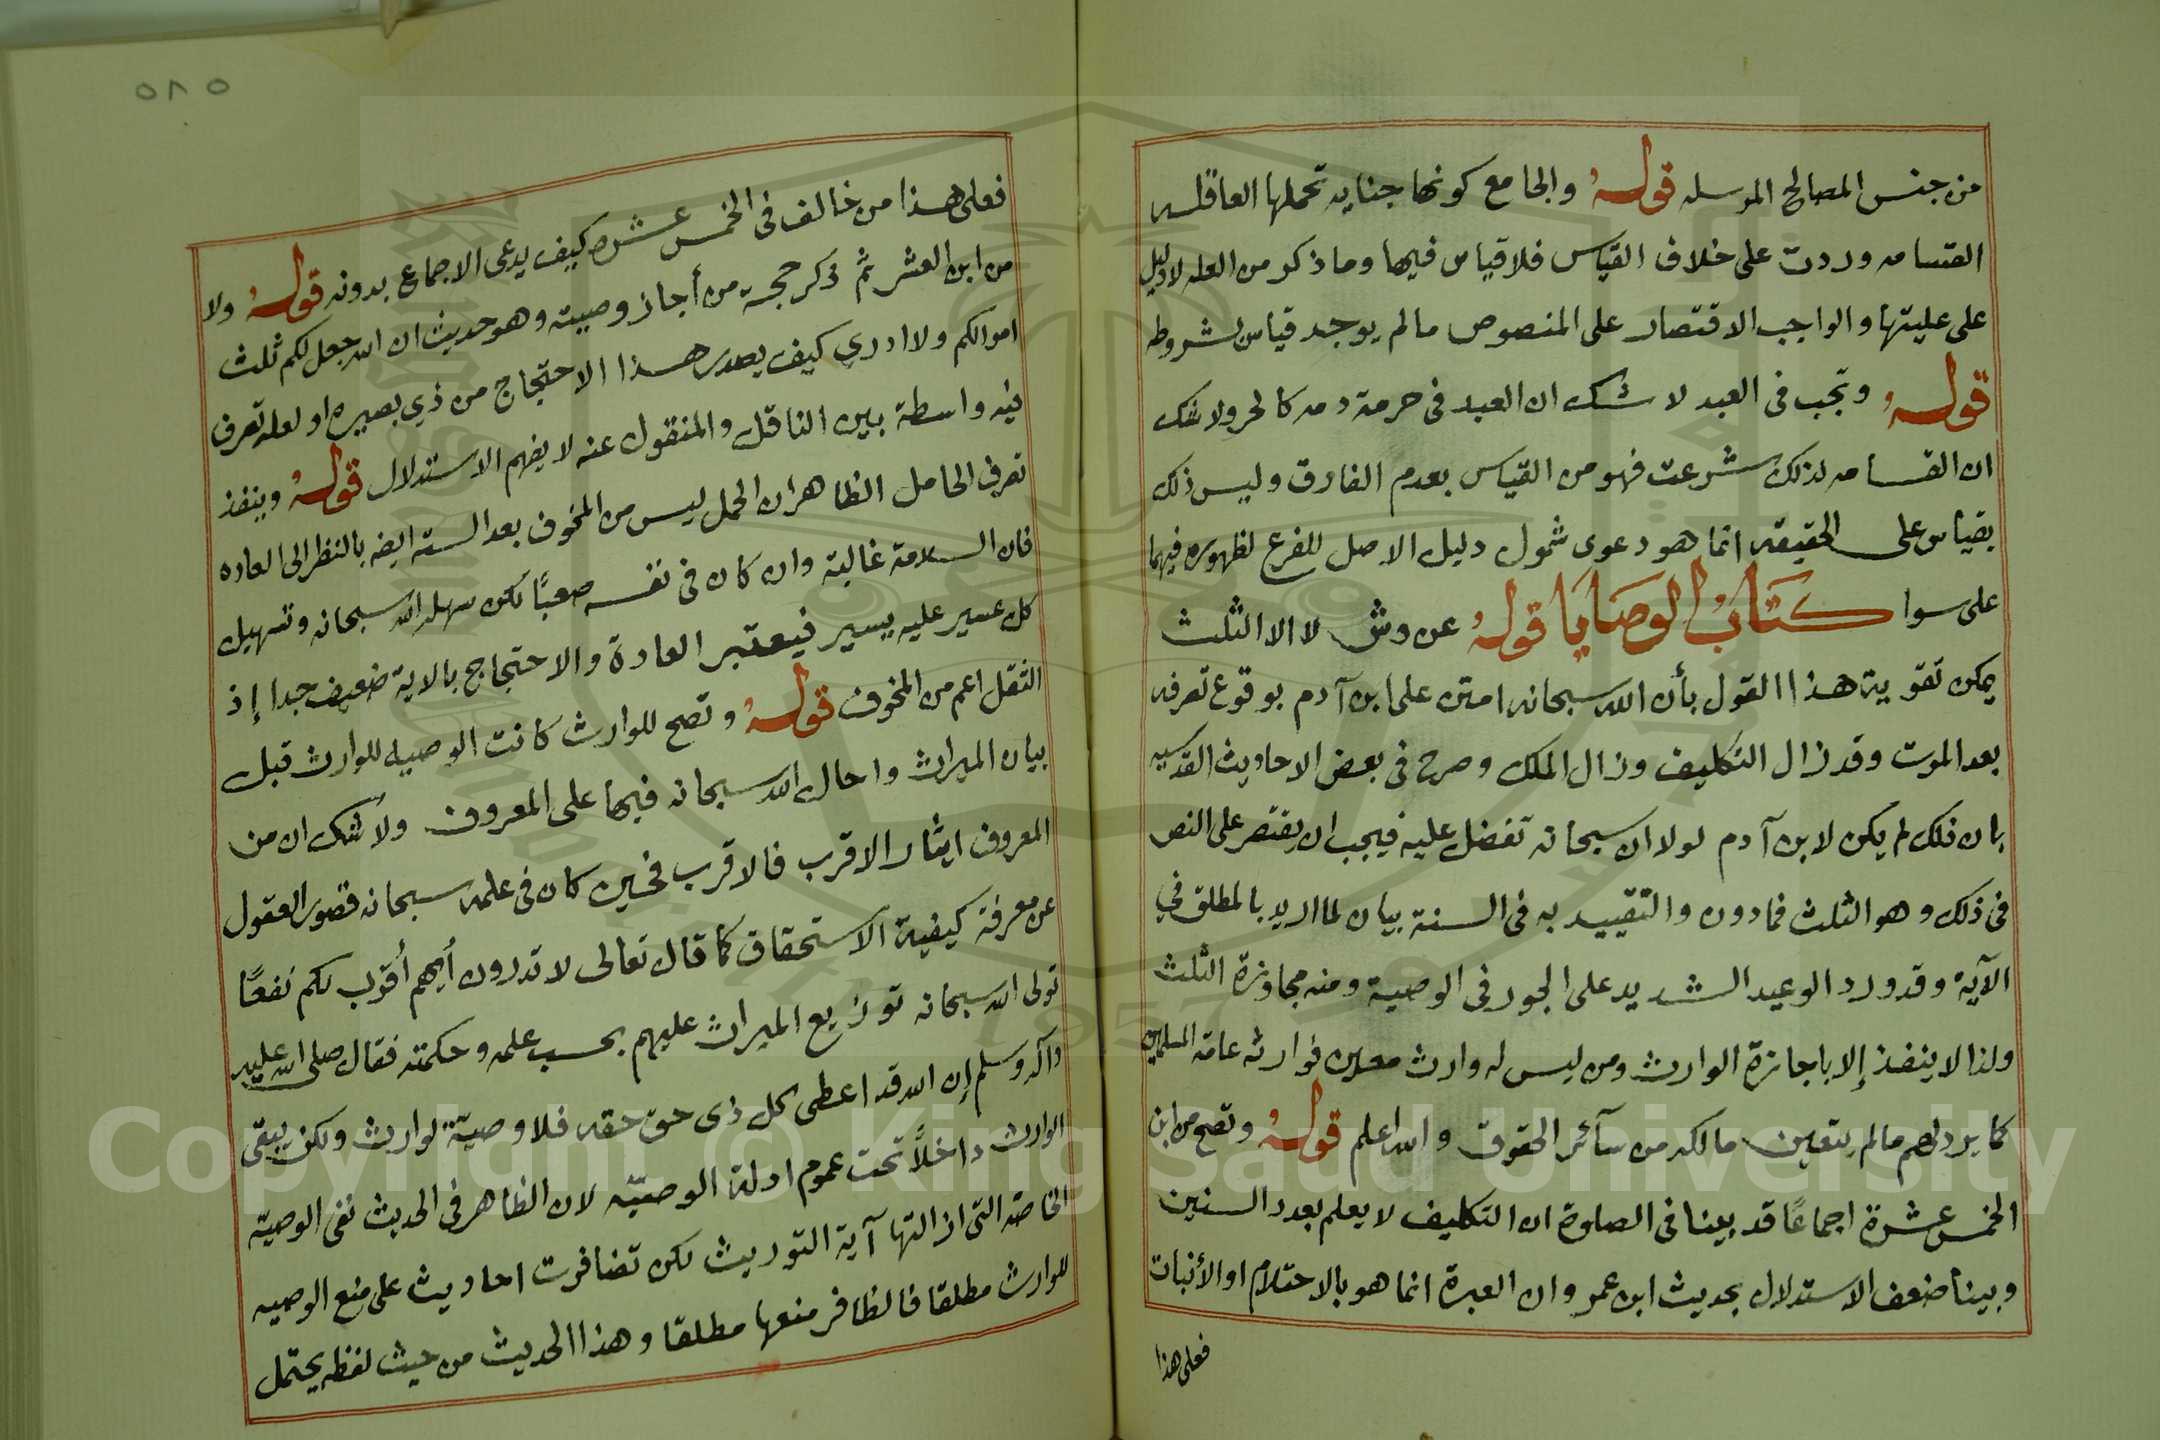 من جنس المصالح المرسله قوله والجامع كونها جنايه تحملها العاقله
القسامه وردت على خلاف القياس فلا قياس فيها وما ذكر من العله لا دليل
على عليتها والواجب الاقتصار على المنصوص مالم يوجد قياس بشروطه
قوله وتجب فى العبد لا شك ان العبد فى حرمة دمه كالحر ولا شك
ان القسامه لذلك شرعت فهو من القياس بعدم الفارق وليس ذلك
بقياس على الحقيقه انما هو دعوى شمول دليل الاصل للفرع لظهوره فيهما
على سوا كتاب الوصايا قوله عن وش لا الا الثلث
يمكن تقوية هذا القول بأن الله سبحانه امتن على ابن آدم بوقوع تصرفه
بعد الموت وقد زال التكليف وزال الملك وصرح فى بعض الاحاديث القدسيه
بان ذلك لم يكن لابن آدم لولا ان سبحانه تفضل عليه فيجب ان يقتصر على النص
فى ذلك وهو الثلث فمادون والتقييد به فى السنة بيان لما اريد بالمطلق في
الآية وقد ورد الوعيد الشديد على الجور فى الوصية ومنه مجاوزة الثلث
ولذا لا ينفذ إلا باجازة الوارث ومن ليس له وارث معين فوارثه عامة المسلمين
كما يرد لهم مالم يتعين مالكه من سآئر الحقوق والله اعلم قوله وتصح من ابن
الخمس عشرة اجماعًا قد بينا فى الصلوة ان التكليف لا يعلم بعدد السنين
وبينا ضعف الاستدلال بحديث ابن عمر وان العبرة انما هو بالاحتلام او الأنبات
فعلى هذا
٥٨٥
فعلى هذا من خالف فى الخمس عشره كيف يدعى الاجماع بدونه قوله ولا
من ابن العشر ثم ذكر حجة من أجاز وصيته وهو حديث ان الله جعل لكم ثلث
اموالكم ولا ادري كيف يصدر هذا الاحتجاج من ذي بصيره او لعله تصرف
فيه واسطة بين الناقل والمنقول عنه لا يفهم الاستدلال قوله وينفذ
تصرف الحامل الظاهر ان الحمل ليس من المخوف بعد السته ايضه بالنظر الى العاده
فان السلامة غالبة وان كان فى نفسه صعبًا لكن سهله الله سبحانه وتسهيل
كل عسير عليه يسير فيعتبر العادة والاحتجاج بالاية ضعيف جدا إذ
الثقل اعم من المخوف قوله وتصح للوارث كانت الوصيه للوارث قبل
بيان الميراث واحال الله سبحانه فيها على المعروف ولا شك ان من
المعروف ايثار الاقرب فالاقرب فحين كان فى علمه سبحانه قصور العقول
عن معرفة كيفية الاستحقاق كما قال تعالى لا تدرون أيهم أقرب لكم نفعًا
تولى الله سبحانه توزيع الميراث عليهم بحسب علمه وحكمته فقال صلى الله عليه
وآله وسلم إن الله قد اعطى كل ذى حق حقه فلا وصية لوارث ولكن يبقى
الوارث داخلاً تحت عموم ادلة الوصيّه لان الظاهر فى الحديث نفى الوصيه
الخاصة التى ازالتها آية التوريث لكن تضافرت احاديث على منع الوصيه
للوارث مطلقا فالظافر منعها مطلقا وهذا الحديث من حيث لفظه يحتمل
Copyright © King Saud University